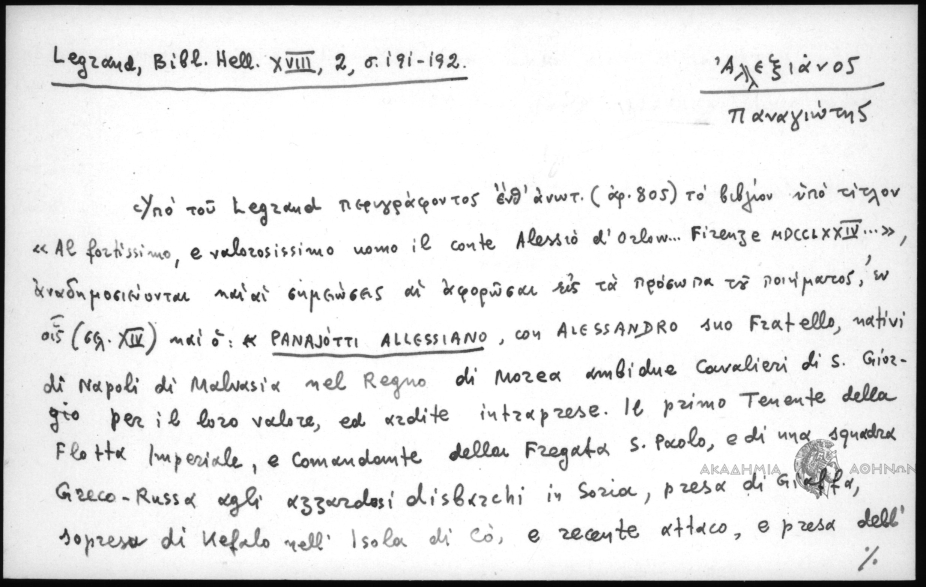 Legrand, Bibl. Hell. XVIII, 2, σ. 191-192.
Ἀλλεξιάνος
Παναγιώτης
Ὑπό τοῦ Legrand περιγράφοντος ἔνθ' ἀνωτ. (ἀρ. 805) τό βιβλίον ὑπό τίτλον
« Al fortissimo, e valorosissimo uomo il conte Alessiò d'Orlow... Firenze MDCCLXXIV... »,
ἀναδημοσιεύονται καί αἱ σημειώσεις αἱ ἀφορῶσαι εἰς τά πρόσωπα τοῦ ποιήματος, ἐν
οἷς (σελ. XIV) καί ὁ: « PANAJÒTTI ALLESSIANO, con ALESSANDRO suo Fratello, nativi
di Napoli di Malvasia nel Regno di Morea ambidue Cavalieri di S. Gior-
gio per il loro valore, ed ardite intraprese. Il primo Tenente della
Flotta Imperiale, e Comandante della Fregata S. Paolo, e di una squadra
Greco-Russa agli azzardosi disbarchi in Soria, presa di Giaffa,
sopresa di Kefalo nell' Isola di Cò, e recente attaco, e presa dell'
%
ΑΚΑΔΗΜΙΑ ΑΘΗΝΩΝ